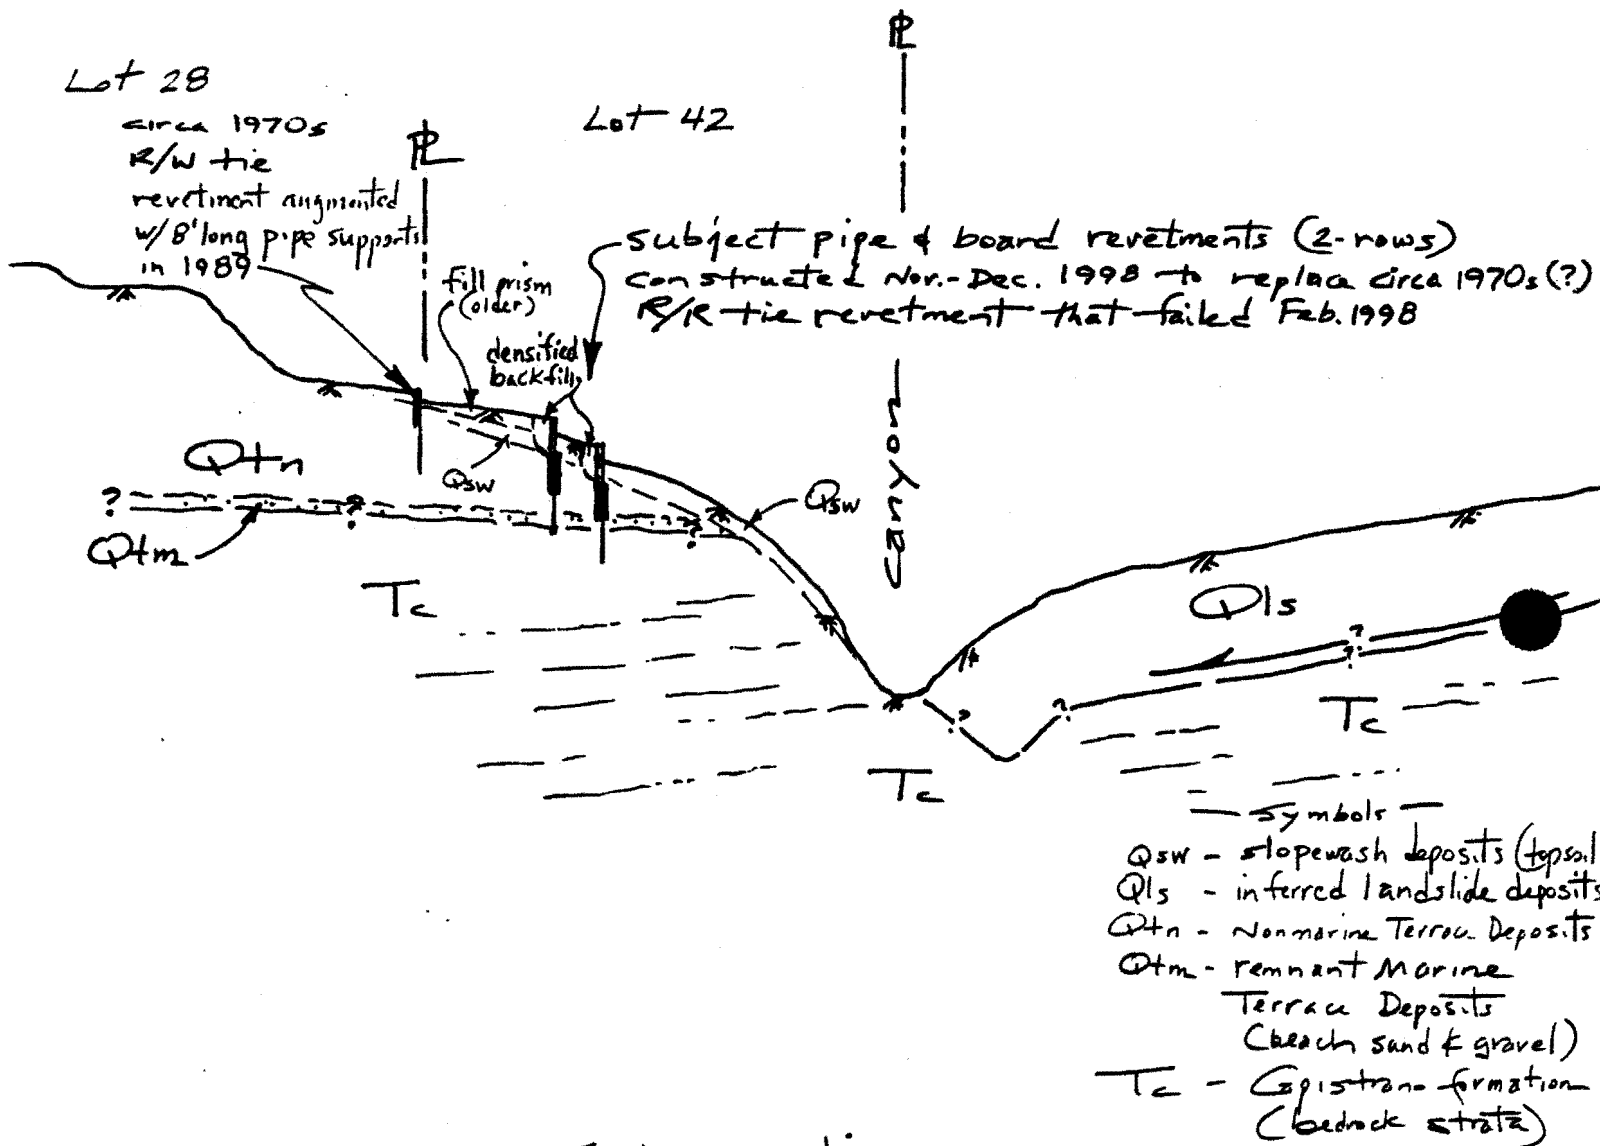 Lot 28
circa 1970s
R/W tie
revetment augmented
w/8' long pipe supports
in 1989
PL
Lot 42
PL
subject pipe & board revetments (2-rows)
constructed Nov.-Dec. 1998 to replace circa 1970s(?)
R/R tie revetment that failed Feb. 1998
fill prism
(older)
densified
backfill
Canyon
Qtn
Qsw
Qsw
?
?
?
Qtm
Tc
Qls
?
?
?
?
Tc
Tc
— Symbols —
Qsw - slopewash deposits (topsoil
Qls - inferred landslide deposits
Qtn - Nonmarine Terrace Deposits
Qtm - remnant Marine
Terrace Deposits
(beach sand & gravel)
Tc - Capistrano formation
(bedrock strata)